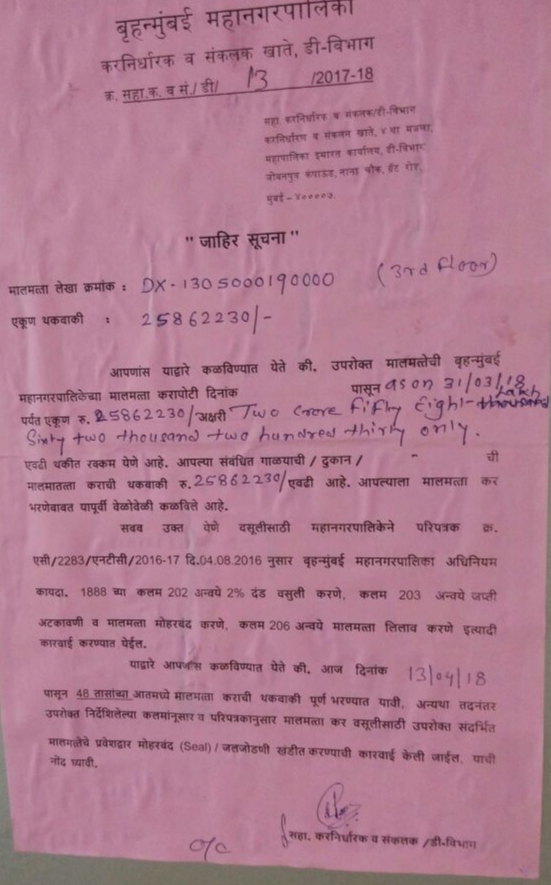 बृहन्मुंबई महानगरपालिका
करनिर्धारक व संकलक खाते, डी-विभाग
क्र. सहा.क. व सं./ डी/ 13 /2017-18
सहा करनिर्धारक व संकलक/डी-विभाग
करनिर्धारण व संकलन खाते, ४ था मजला,
महापालिका इमारत कार्यालय, डी-विभाग
जोबनपुत्र कंपाऊंड, नाना चौक, ग्रँट रोड,
मुंबई – ४००००७.
" जाहिर सूचना "
मालमत्ता लेखा क्रमांक : DX-1305000190000 (3rd floor)
एकूण थकवाकी : 25862230/-
आपणांस याद्वारे कळविण्यात येते की, उपरोक्त मालमत्तेची बृहन्मुंबई
महानगरपालिकेच्या मालमत्ता करापोटी दिनांक पासून as on 31/03/18
पर्यंत एकूण रु. 25862230/अक्षरी Two crore fifty Eight- Lakh
Sixty two thousand two hundred thirty only.
एवढी थकीत रक्कम येणे आहे. आपल्या संबंधित गाळयाची / दुकान / - ची
मालमातत्ता कराची थकवाकी रु.25862230/एवढी आहे. आपल्याला मालमत्ता कर
भरणेबाबत यापूर्वी वेळोवेळी कळविले आहे.
सबब उक्त येणे वसूलीसाठी महानगरपालिकेने परिपत्रक क्र.
एसी/2283/एनटीसी/2016-17 दि.04.08.2016 नुसार बृहन्मुंबई महानगरपालिका अधिनियम
कायदा. 1888 च्या कलम 202 अन्वये 2% दंड वसुली करणे, कलम 203 अन्वये जप्ती
अटकावणी व मालमत्ता मोहरबंद करणे, कलम 206 अन्वये मालमत्ता लिलाव करणे इत्यादी
कारवाई करण्यात येईल.
याद्वारे आपणांस कळविण्यात येते की, आज दिनांक 13/04/18
पासून 48 तासांच्या आतमध्ये मालमत्ता कराची थकवाकी पूर्ण भरण्यात यावी, अन्यथा तदनंतर
उपरोक्त निर्देशिलेल्या कलमांनूसार व परिपत्रकानुसार मालमत्ता कर वसूलीसाठी उपरोक्त संदर्भित
मालमत्तेचे प्रवेशद्वार मोहरबंद (Seal) / जलजोडणी खंडीत करण्याची कारवाई केली जाईल, याची
नोंद घ्यावी.
सहा. करनिर्धारक व संकलक /डी-विभाग
o/c